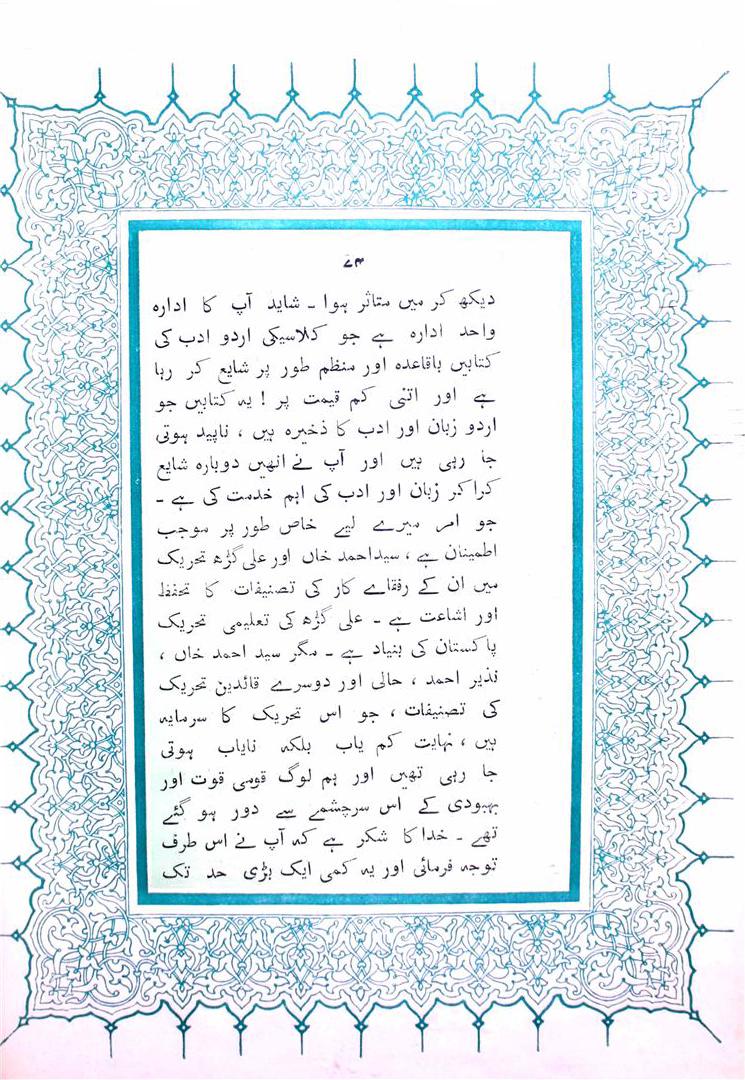 ۴۷
دیکھ کر میں متاثر ہوا ۔ شاید آپ کا ادارہ
واحد ادارہ ہے جو کلاسیکی اردو ادب کی
کتابیں باقاعدہ اور منظم طور پر شایع کر رہا
ہے اور اتنی کم قیمت پر ! یہ کتابیں جو
اردو زبان اور ادب کا ذخیرہ ہیں ، ناپید ہوتی
جا رہی ہیں اور آپ نے انھیں دوبارہ شایع
کرا کر زبان اور ادب کی اہم خدمت کی ہے ۔
جو امر میرے لیے خاص طور پر موجب
اطمینان ہے ، سید احمد خاں اور علی گڑھ تحریک
میں ان کے رفقاے کار کی تصنیفات کا تحفظ
اور اشاعت ہے ۔ علی گڑھ کی تعلیمی تحریک
پاکستان کی بنیاد ہے ۔ مگر سید احمد خاں ،
نذیر احمد ، حالی اور دوسرے قائدین تحریک
کی تصنیفات ، جو اس تحریک کا سرمایہ
ہیں ، نہایت کم یاب بلکہ نایاب ہوتی
جا رہی تھیں اور ہم لوگ قومی قوت اور
بہبودی کے اس سرچشمے سے دور ہو گئے
تھے ۔ خدا کا شکر ہے کہ آپ نے اس طرف
توجہ فرمائی اور یہ کمی ایک بڑی حد تک